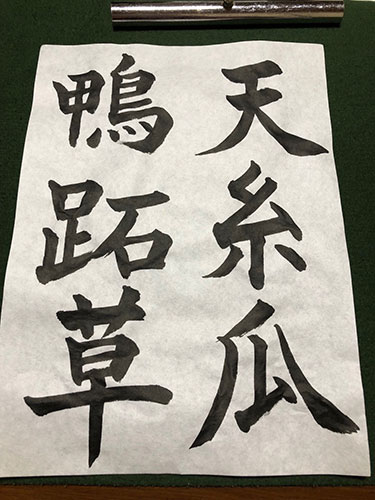 天糸瓜
鴨跖草